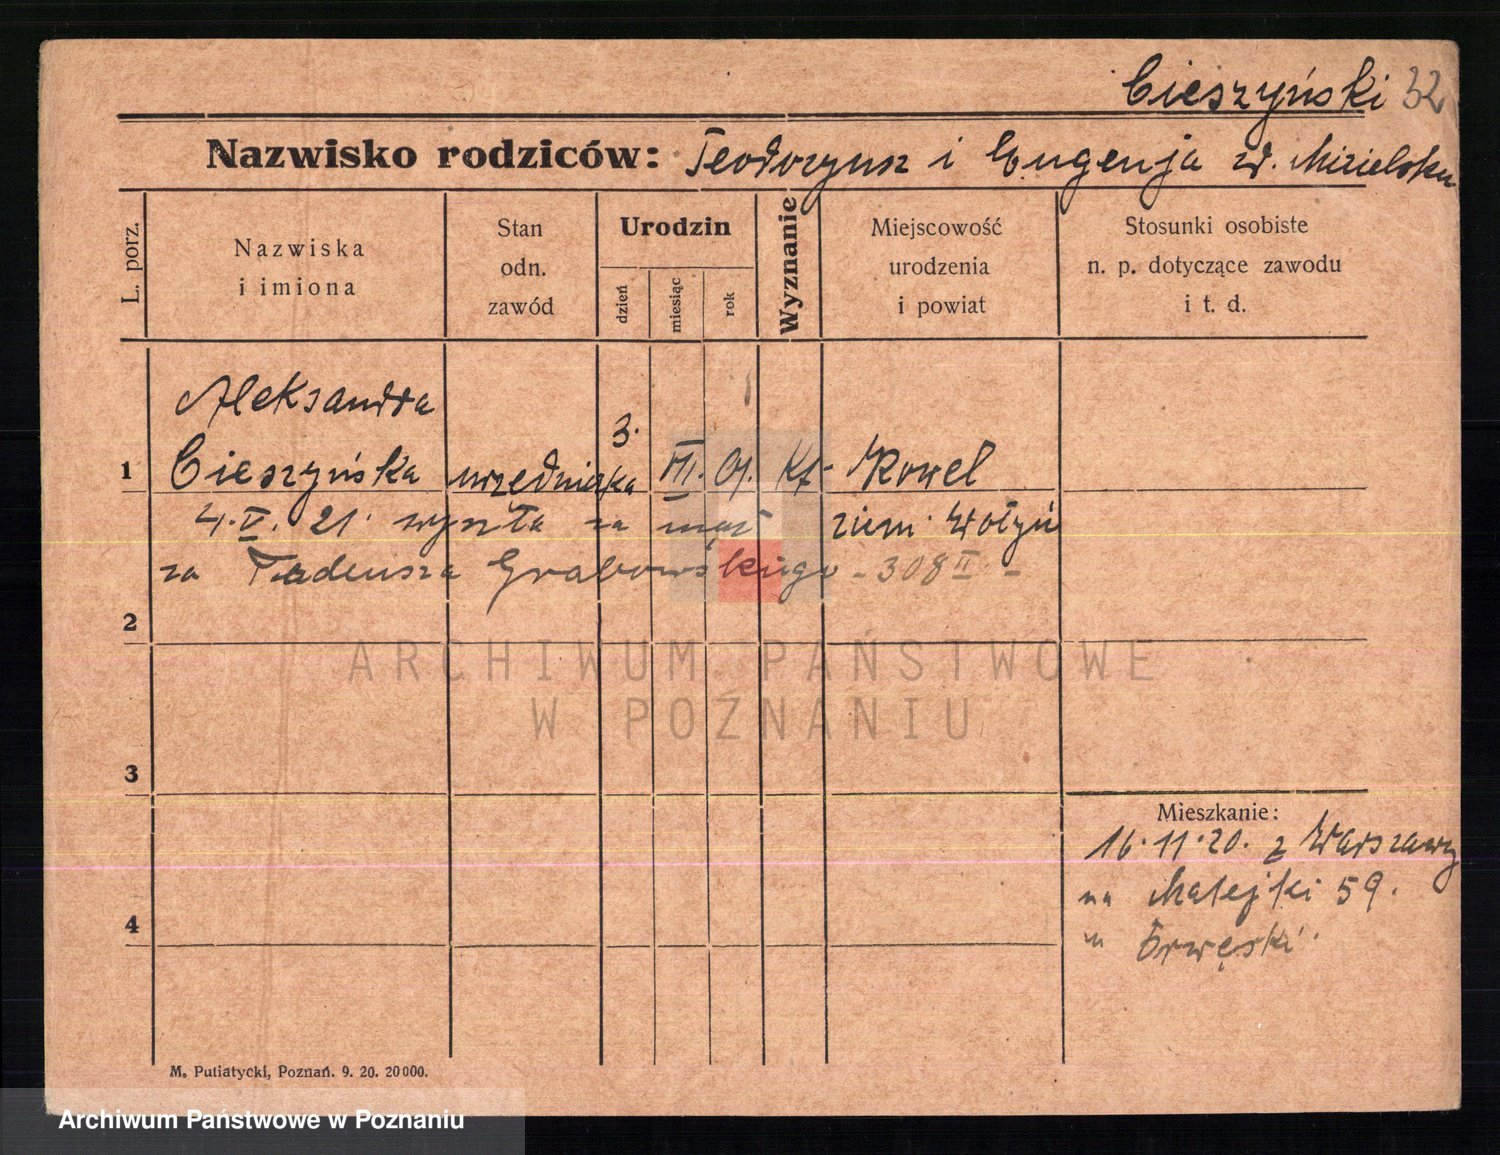 Cieszyński 32
Nazwisko rodziców: Teodozjusz i Eugenja zd.
L. porz.
Nazwiska
i imiona
Stan
odn.
zawód
Urodzin
dzień
miesiąc
rok
Wyznanie
Miejscowość
urodzenia
i powiat
Stosunki osobiste
n. p. dotyczące zawodu
i t. d.
Aleksandra
1 Cieszyńska urzędniczka 3. 01. Kt. Kowel
4.V.21. wyszła za mąż ziem. Wołyń
za Tadeusza Grabowskiego - 308 II -
2
ARCHIWUM PAŃSTWOWE
W POZNANIU
3
Mieszkanie:
16.11.20. z Warszawy
na Matejki 59.
4
M. Putiatycki, Poznań. 9. 20. 20000.
Archiwum Państwowe w Poznaniu